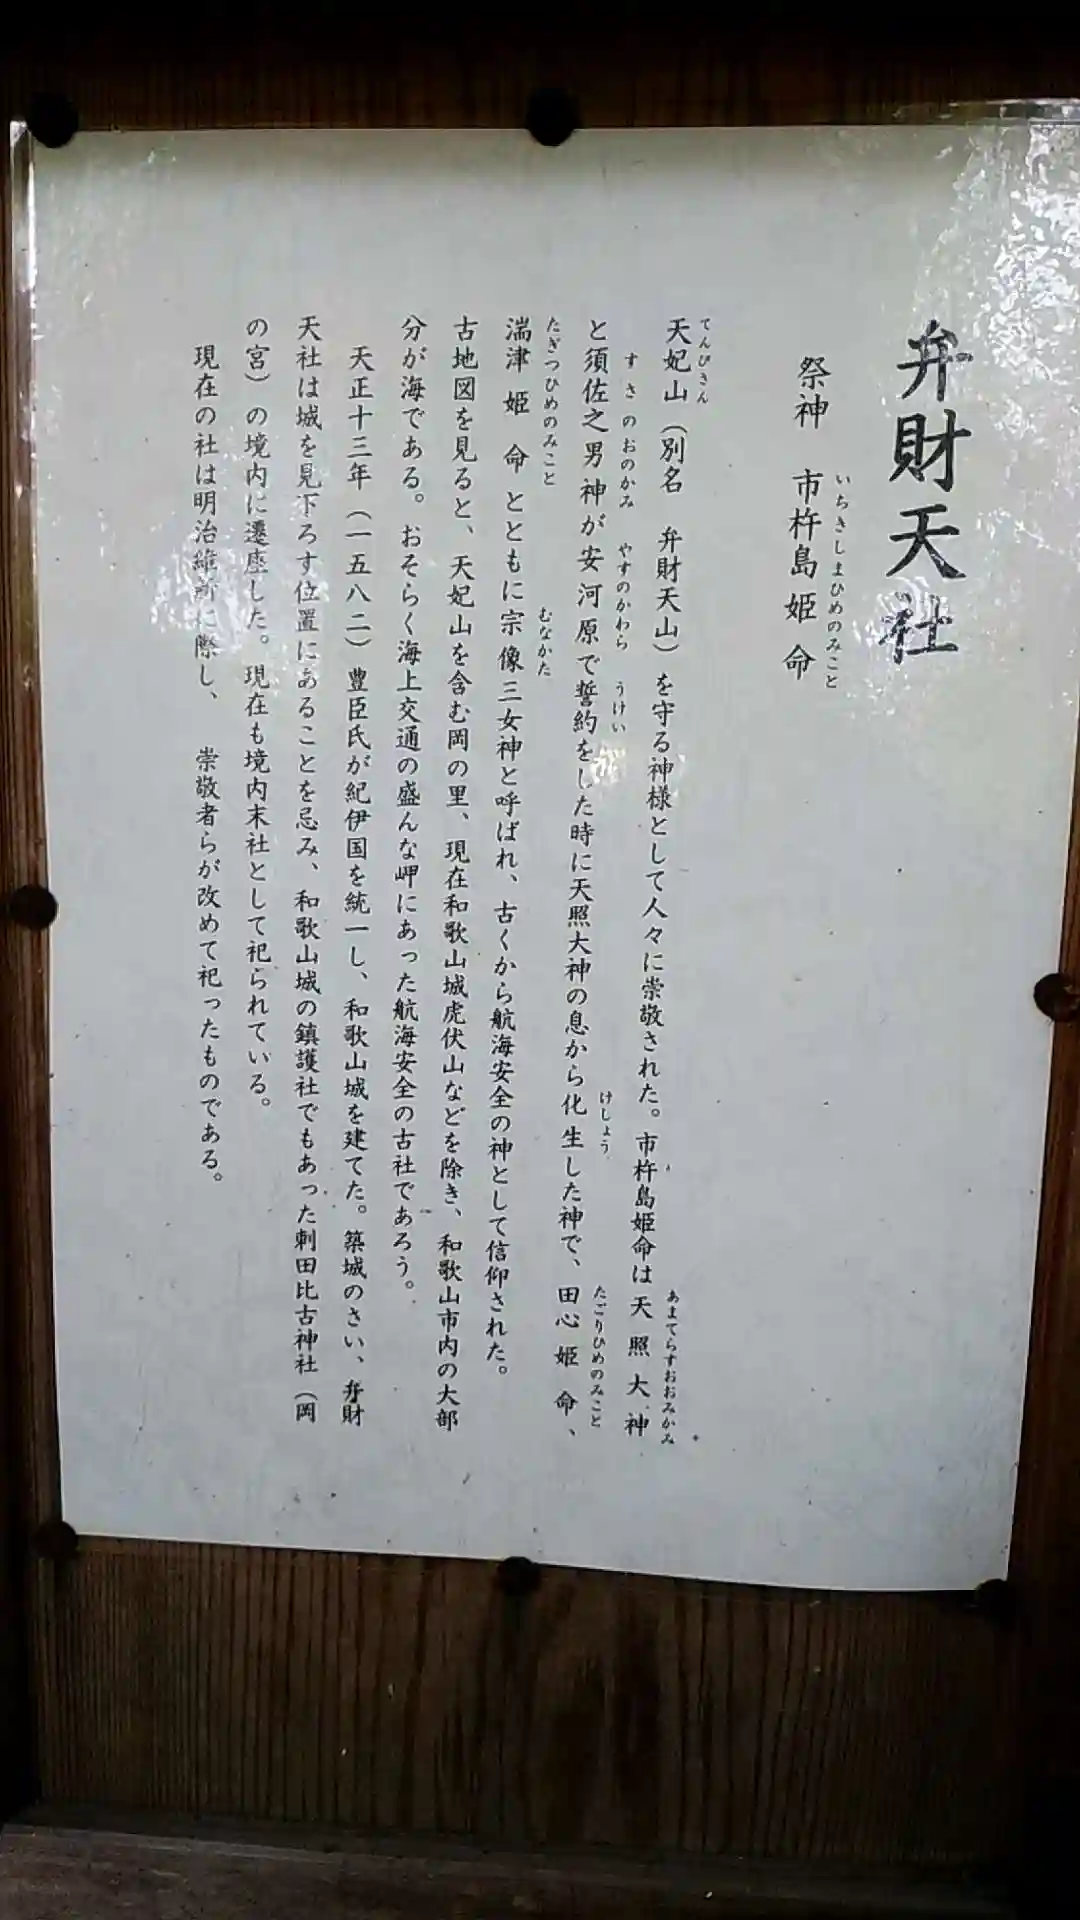 弁財天社
祭神 市杵島姫命
いちきしまひめのみこと
てんびさん
天妃山(別名 弁財天山)を守る神様として人々に崇敬された。市杵島姫命は天照大神
あまてらすおおみかみ
すさのおのかみ やすのかわら うけい けしょう
と須佐之男神が安河原で誓約をした時に天照大神の息から化生した神で、田心姫命、
たごりひめのみこと
たぎつひめのみこと むなかた
湍津姫命とともに宗像三女神と呼ばれ、古くから航海安全の神として信仰された。
古地図を見ると、天妃山を含む岡の里、現在和歌山城虎伏山などを除き、和歌山市内の大部
分が海である。おそらく海上交通の盛んな岬にあった航海安全の古社であろう。
天正十三年(一五八二)豊臣氏が紀伊国を統一し、和歌山城を建てた。築城のさい、弁財
天社は城を見下ろす位置にあることを忌み、和歌山城の鎮護社でもあった刺田比古神社(岡
の宮)の境内に遷座した。現在も境内末社として祀られている。
現在の社は明治維新に際し、 崇敬者らが改めて祀ったものである。